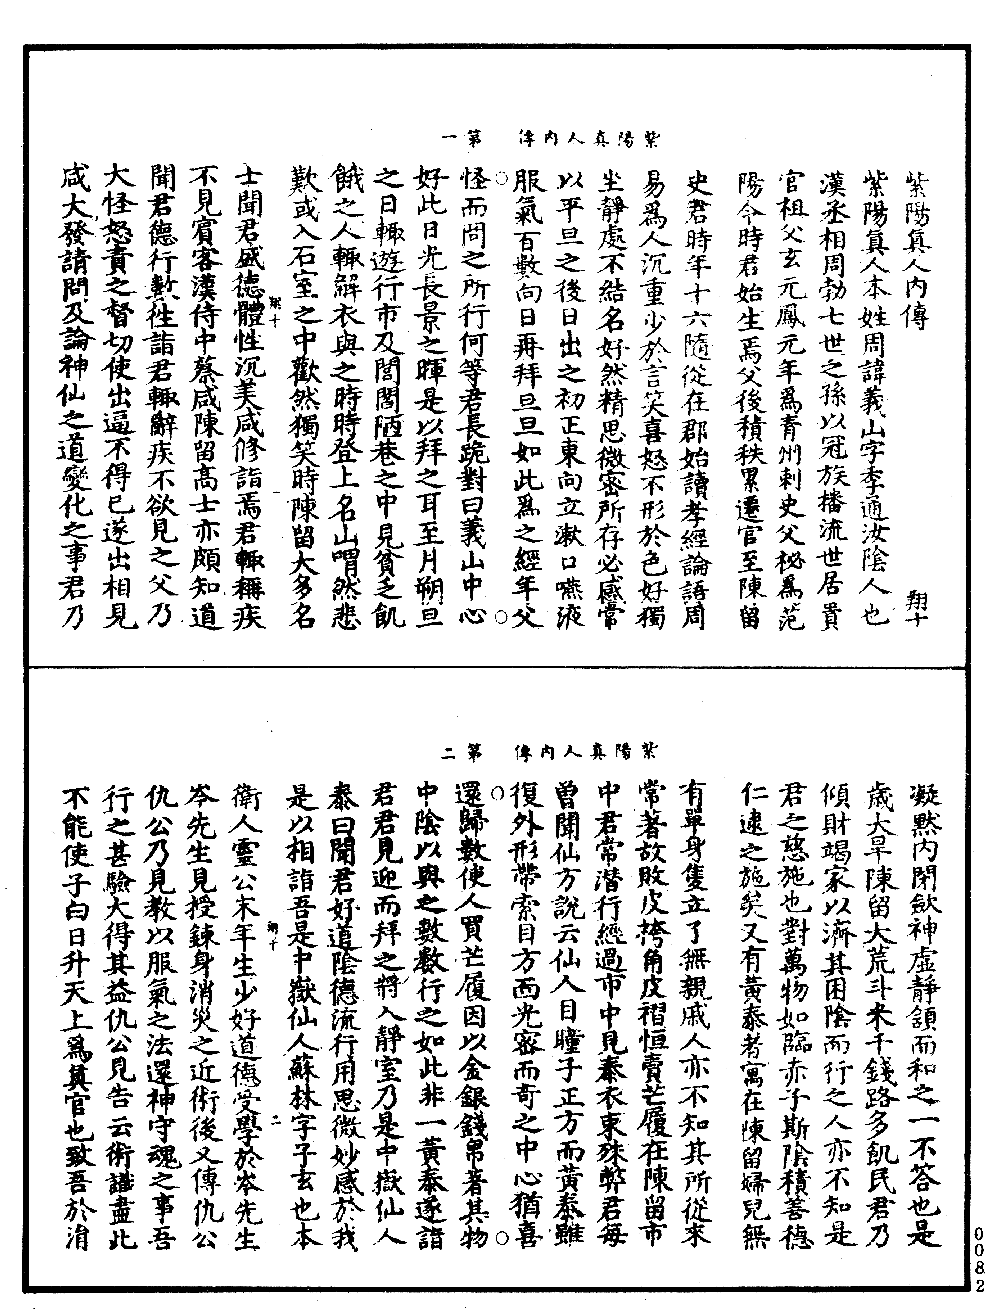 紫陽真人內傳　第一
紫陽真人內傳　翔十
紫陽真人本姓周諱義山字季通汝陰人也
漢丞相周勃七世之孫以冠族播流世居貴
官祖父玄元鳳元年為青州刺史父秘為范
陽令時君始生焉父後積秩累遷官至陳留
史君時年十六隨從在郡始讀孝經論語周
易為人沉重少於言笑喜怒不形於色好獨
坐靜處不結名好然精思微密所存必感常
以平旦之後日出之初正東向立漱口嚥液
服氣百數向日再拜旦旦如此為之經年父
怪而問之所行何等君長跪對曰義山中心
好此日光長景之暉是以拜之耳至月朔旦
之日輒遊行市及閭閻陋巷之中見貧乏飢
餓之人輒解衣與之時時登上名山喟然悲
歎或入石室之中歡然獨笑時陳留大多名
士聞君盛德體性沉美咸修詣焉君輒稱疾
翔十
不見賓客漢侍中蔡咸陳留高士亦頗知道
聞君德行數往詣君輒辭疾不欲見之父乃
大怪怒責之督切使出逼不得已遂出相見
咸大發請問及論神仙之道變化之事君乃
紫陽真人內傳　第二
凝默內閉斂神虛靜頷而和之一不答也是
歲大旱陳留大荒斗米千錢路多飢民君乃
傾財竭家以濟其困陰而行之人亦不知是
君之慈施也對萬物如臨赤子斯陰積善德
仁逮之施矣又有黃泰者寓在陳留婦兒無
有單身隻立了無親戚人亦不知其所從來
常著故敗皮袴角皮褶恒賣芒履在陳留市
中君常潛行經過市中見泰衣東殊弊君每
曾聞仙方說云仙人目瞳子正方而黃泰雖
復外形帶索目方面光密而奇之中心猶喜
還歸數使人買芒履因以金銀錢帛著其物
中陰以與之數數行之如此非一黃泰遂詣
君君見迎而拜之將入靜室乃是中嶽仙人
泰曰聞君好道陰德流行用思微妙感於我
是以相詣吾是中嶽仙人蘇林字子玄也本
衛人靈公末年生少好道德受學於岑先生
翔十　二
岑先生見授鍊身消災之近術後又傳仇公
仇公乃見教以服氣之法還神守魂之事吾
行之甚驗大得其益仇公見告云術識盡此
不能使子白日升天上為真官也致吾於涓
0082